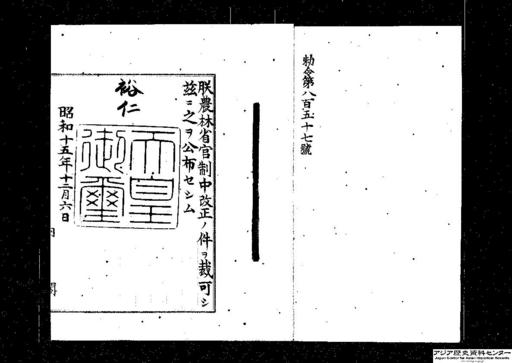 勅令第八百五十七號
朕農林省官制中改正ノ件ヲ裁可シ
玆ニ之ヲ公布セシム
裕仁
天皇御璽
昭和十五年十二月六日
アジア歴史資料センター
Japan Center for Asian Historical Records